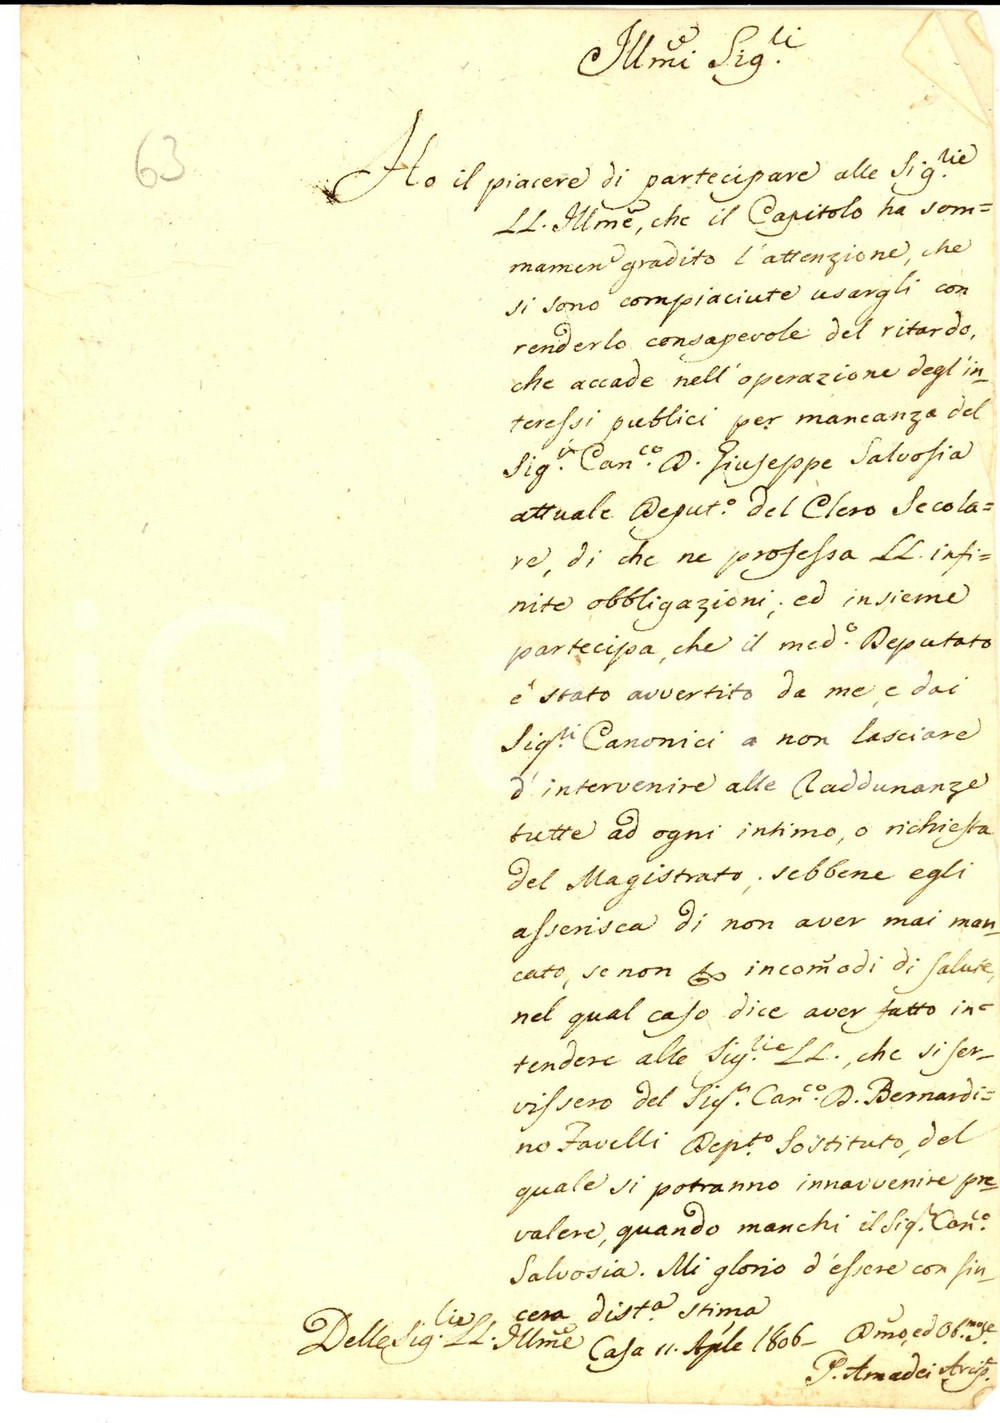 Illmi Sig.li
63
Ho il piacere di partecipare alle Sig.lie
LL. Illme, che il Capitolo ha som=
mamen gradito l'attenzione, che
si sono compiaciute usargli con
renderlo consapevole del ritardo,
che accade nell'operazione degl'in_
teressi publici per mancanza del
Sig.r Can.co D. Giuseppe Salvosia
attuale Deput.o del Clero Secola=
re, di che ne professa LL. infi=
nite obbligazioni; ed insieme
partecipa, che il med.o Deputato
è stato avvertito da me, e dai
Sig.li Canonici a non lasciare
d'intervenire alle Raddunanze
tutte ad ogni intimo, o richiesta
del Magistrato; sebbene egli
asserisca di non aver mai man_
cato, se non p incomodi di salute,
nel qual caso dice aver fatto in=
tendere alle Sig.lie LL., che si ser_
vissero del Sig.r Can.co D. Bernardi=
no Favelli Dept.o Sostituto, del
quale si potranno innavvenire pre_
valere, quando manchi il Sig.r Can.co
Salvosia. Mi glorio d'essere con sin_
cera dist.a stima
Delle Sig.lie LL. Illme Casa 11. Aple 1806_ Dmo, ed Ob.mo
P. Amadei Arcip.